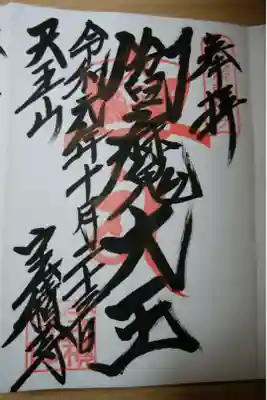 奉拝
閻魔大王
令和弐年十月二十三日
天王山
宝積寺